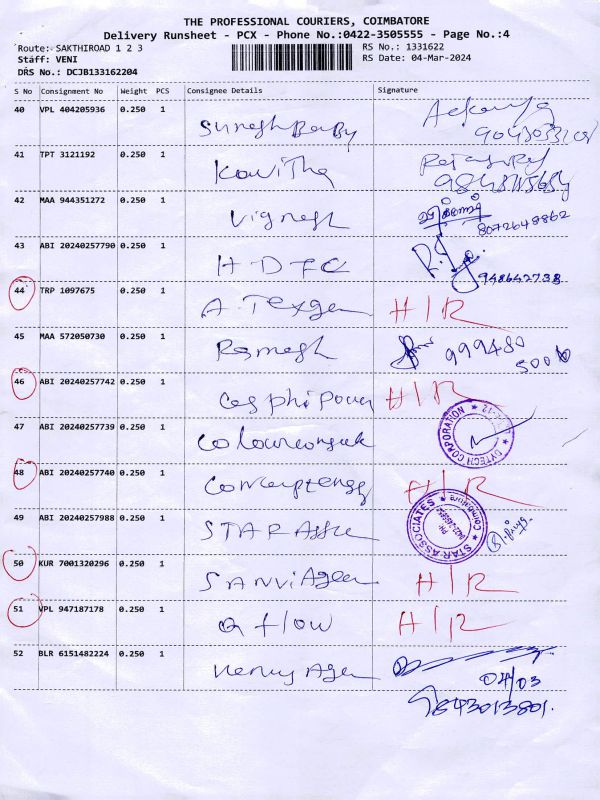 THE PROFESSIONAL COURIERS, COIMBATORE
Delivery Runsheet - PCX - Phone No.:0422-3505555 - Page No.:4
Route: SAKTHIROAD 1 2 3 RS No.: 1331622
Staff: VENI RS Date: 04-Mar-2024
DRS No.: DCJB133162204
S No Consignment No Weight PCS Consignee Details Signature
40 VPL 404205936 0.250 1
Suresh Baby
41 TPT 3121192 0.250 1
Kavitha
42 MAA 944351272 0.250 1
Vignesh 8072648862
43 ABI 20240257790 0.250 1
HDFC 948642738
44 TRP 1097675 0.250 1
A. Texgen H/R
45 MAA 572050730 0.250 1
Ramesh 999480
5001
46 ABI 20240257742 0.250 1
H/R
47 ABI 20240257739 0.250 1
DYTECH CORPORATION
48 ABI 20240257740 0.250 1
H/R
49 ABI 20240257988 0.250 1
STAR Asso STAR ASSOCIATES Coimbatore
50 KUR 7001320296 0.250 1
SANVI Agen H/R
51 VPL 947187178 0.250 1
Q flow H/R
52 BLR 6151482224 0.250 1
04/03
9843013801.